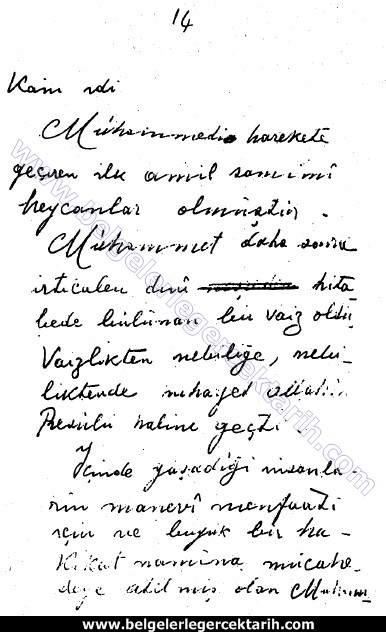 14
Kani idi
Muhammedi harekete
geçiren ilk amil samimî
heycanlar olmuştur.
Muhammet daha sonra
irticalen dinî hita
bede bulunan bir vaiz oldu
Vaizlikten nebiliğe, nebi-
liktende nihayet allahın
Resulü haline geçti.
İçinde yaşadiği insanla-
rin manevî menfaati
için ve buyuk bir ha-
kikat namina mücahe-
deye atilmiş olan Muham
www.belgelerlegercektarih.com
www.belgelerlegercektarih.com